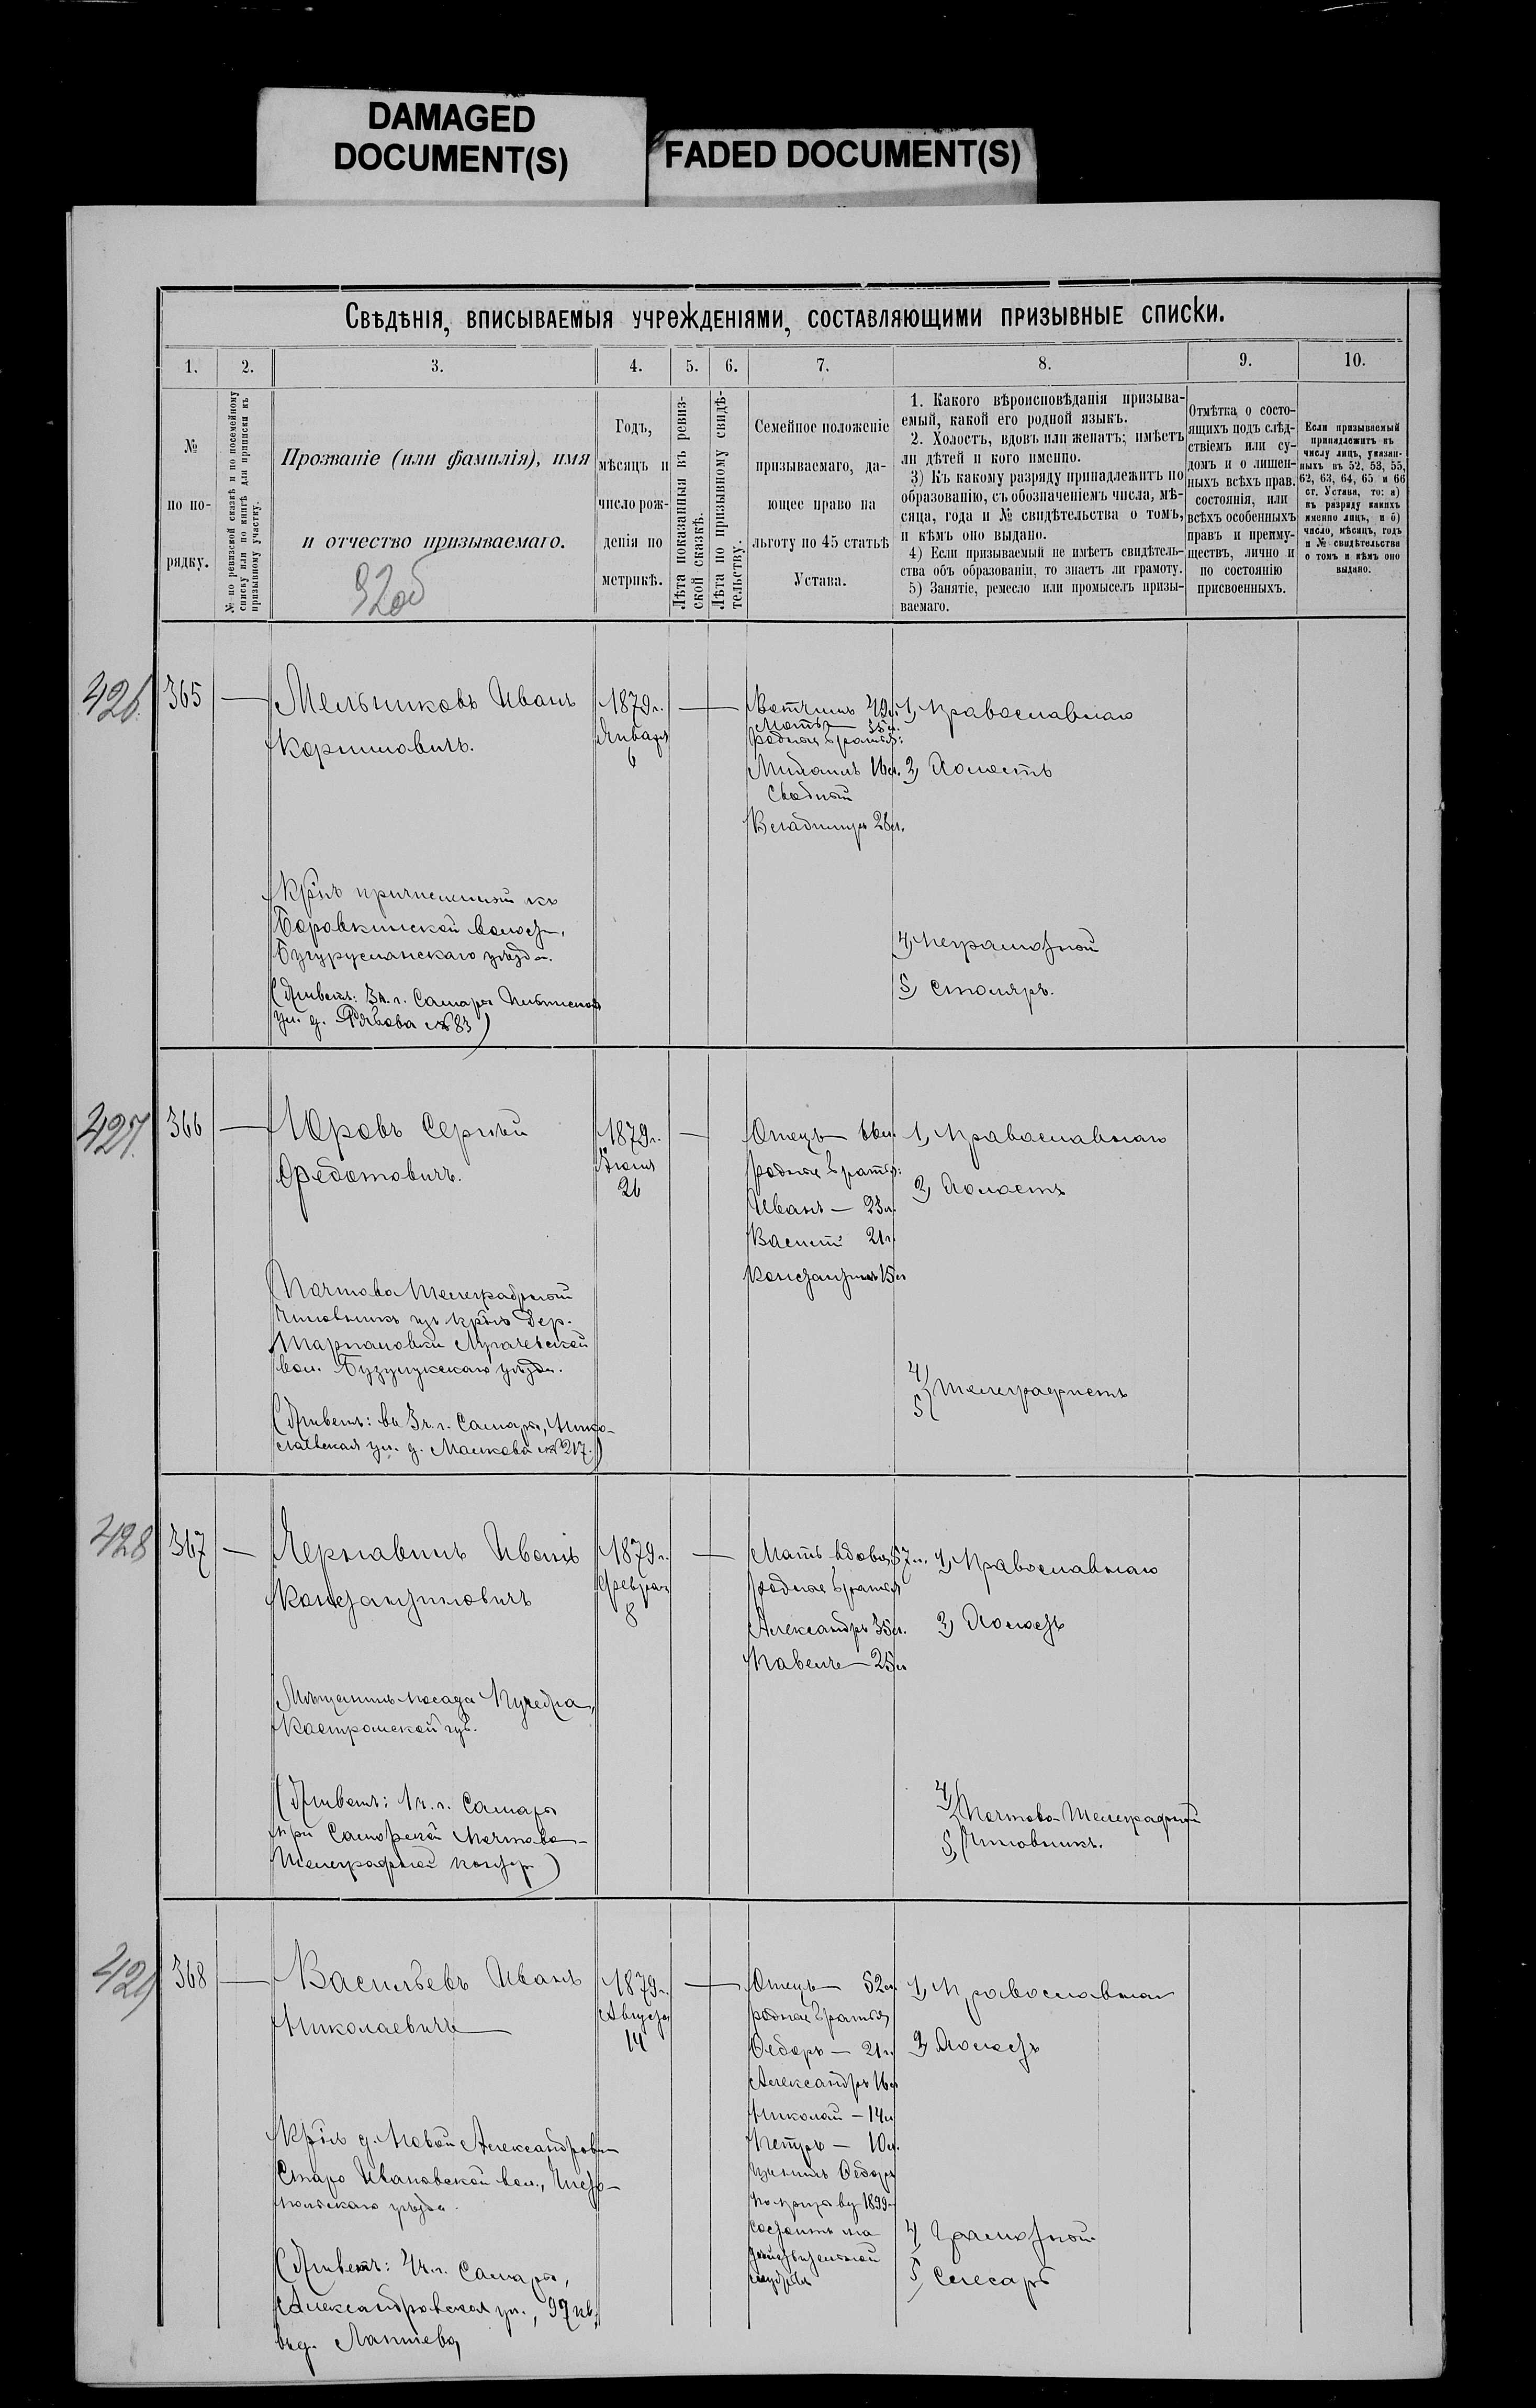 DAMAGED
DOCUMENT(S)
FADED DOCUMENT(S)
Свѣдѣнія, вписываемыя учрежденіями, составляющими призывные списки.
1.
2.
3.
4.
5.
6.
7.
8.
9.
10.
№
по по-
рядку.
№ по ревизской сказкѣ и по посемейному
списку или по книгѣ для приписки къ
призывному участку.
Прозваніе (или фамилія), имя
и отчество призываемаго.
Годъ,
мѣсяцъ и
число рож-
денія по
метрикѣ.
Лѣта показанныя въ ревиз-
ской сказкѣ.
Лѣта по призывному свидѣ-
тельству.
Семейное положеніе
призываемаго, да-
ющее право на
льготу по 45 статьѣ
Устава.
1. Какого вѣроисповѣданія призыва-
емый, какой его родной языкъ.
2. Холостъ, вдовъ или женатъ; имѣетъ
ли дѣтей и кого именно.
3) Къ какому разряду принадлежитъ по
образованію, съ обозначеніемъ числа, мѣ-
сяца, года и № свидѣтельства о томъ,
и кѣмъ оно выдано.
4) Если призываемый не имѣетъ свидѣтель-
ства объ образованіи, то знаетъ ли грамоту.
5) Занятіе, ремесло или промыселъ призы-
ваемаго.
Отмѣтка о состо-
ящихъ подъ слѣд-
ствіемъ или су-
домъ и о лишен-
ныхъ всѣхъ прав.
состоянія, или
всѣхъ особенныхъ
правъ и преиму-
ществъ, лично и
по состоянію
присвоенныхъ.
Если призываемый
принадлежитъ къ
числу лицъ, указан-
ныхъ въ 52, 53, 55,
62, 63, 64, 65 и 66
ст. Устава, то: а)
къ разряду какихъ
именно лицъ, и б)
число, мѣсяцъ, годъ
и № свидѣтельства
о томъ и кѣмъ оно
выдано.
92об
426.
365
Мельниковъ Иванъ
Корниловичъ.
1879г.
Января
6
Вотчимъ 49л.
Мать 55л.
родные братья:
Михаилъ 16л.
Сводный
Владимиръ 26л.
1, Православнаго
2, Холостъ
Кр̃нъ причисленный къ
Боровкинской волости,
Бугурусланскаго уѣзда.
(Живетъ: 3ч. г. Самары
ул. д. № 83)
4, Неграмотной
5, Столяръ.
427.
366
Юровъ Сергѣй
Федотовичъ.
1879г.
26
Отецъ — 66л.
родные братья:
Иванъ — 23л.
Василій 21г.
Константинъ 15л
1, Православнаго
2, Холостъ
Почтово Телеграфный
Чиновникъ изъ кр̃нъ дер.
вол. Бузулукскаго уѣзда.
(Живетъ: въ 3ч. г. Самары, Нико-
лаевская ул. д. Маслова № 217.)
4)
5) Телеграфистъ
428
367
Чернавинъ Иванъ
Константиновичъ
1879г.
Февраля
8
Мать вдова 57л.
родные братья
Александръ 35л.
Павелъ — 25л
1, Православнаго
2, Холостъ
Мѣщанинъ посада Пучежа,
Костромской губ.
(Живетъ: 1ч. г. Самары
при Самарской Почтово-
Телеграфной контор)
4)
5) Почтово-Телеграфный
Чиновникъ.
429
368
Васильевъ Иванъ
Николаевичъ
1879г.
Августа
14
Отецъ — 52л.
родные братья
Федоръ — 21г.
Александръ 16л
Николай — 14л
Петръ — 10л.
Федоръ
1899г.
состоитъ на
дѣйствительной
службѣ
1, Православнаго
2, Холостъ
Кр̃нъ д. Новой Александровки
Старо Ивановской вол., Чисто-
польскаго уѣзда.
(Живетъ: 4ч. г. Самары,
Александровская ул., 97 кв.
въ д. Лаптева,
4, Грамотной
5, Слесарь